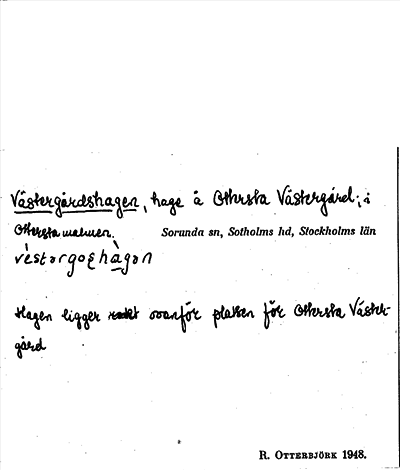 Västergårdshagen, hage å Ottersta Västergård; i
Otterstamalmen. Sorunda sn, Sotholms hd, Stockholms län
Hagen ligger ovanför platsen för Ottersta Väster-
gård
R. Otterbjörk 1948.